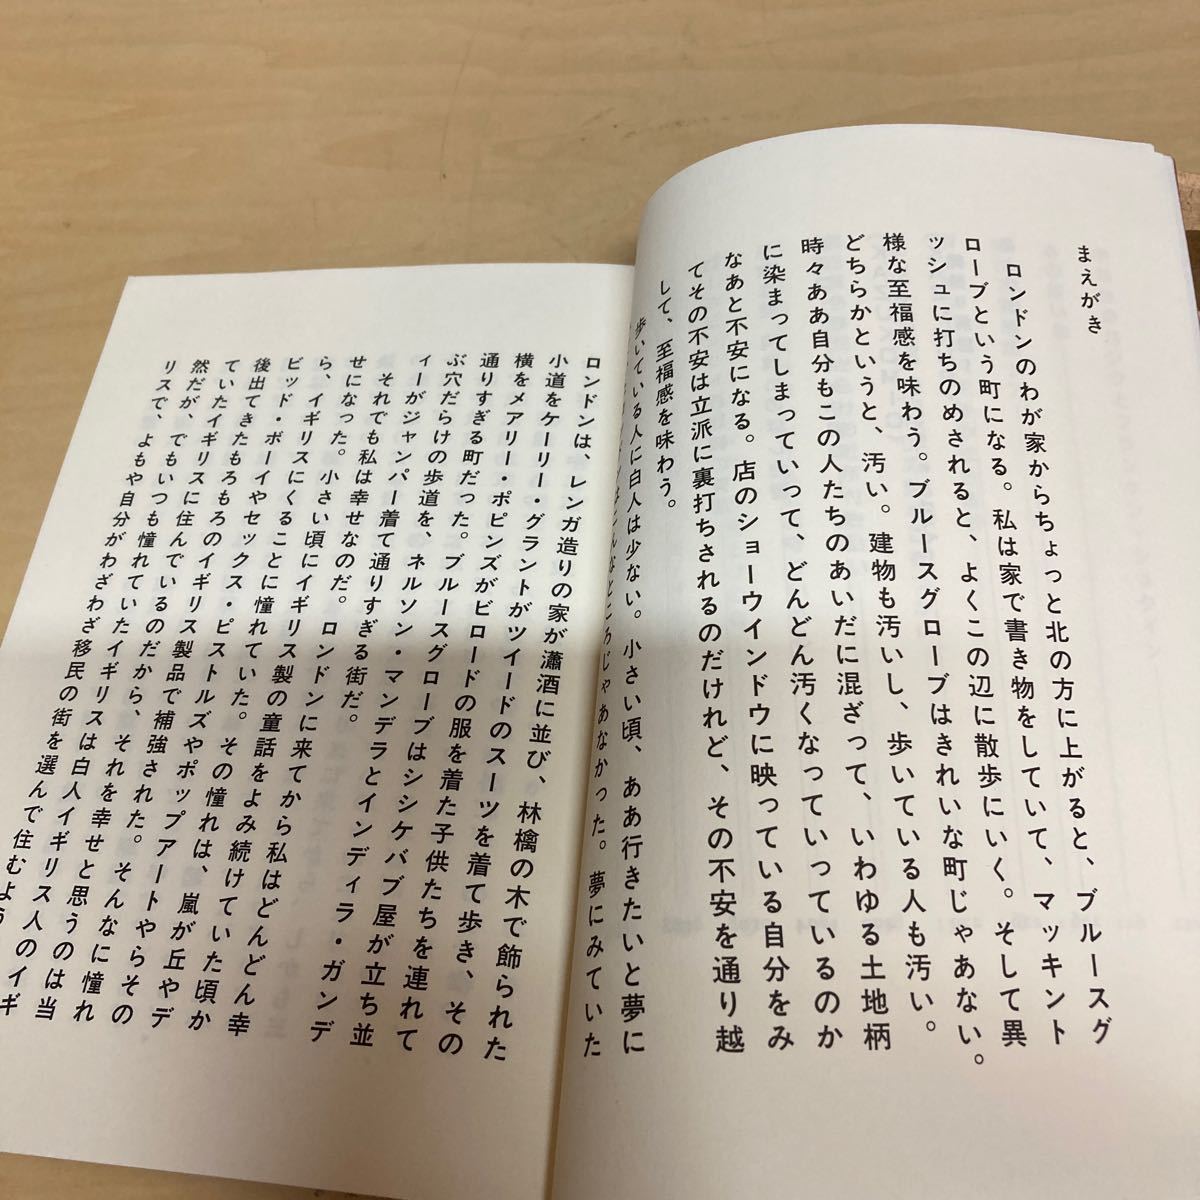 まえがき
ロンドンのわが家からちょっと北の方に上がると、ブルースグ
ローブという町になる。私は家で書き物をしていて、マッキント
ッシュに打ちのめされると、よくこの辺に散歩にいく。そして異
様な至福感を味わう。ブルースグローブはきれいな町じゃあない。
どちらかというと、汚い。建物も汚いし、歩いている人も汚い。
時々ああ自分もこの人たちのあいだに混ざって、いわゆる土地柄
に染まってしまっていって、どんどん汚くなっていっているのか
なあと不安になる。店のショーウインドウに映っている自分をみ
てその不安は立派に裏打ちされるのだけれど、その不安を通り越
して、至福感を味わう。
歩いている人に白人は少ない。小さい頃、ああ行きたいと夢に
はこんなところじゃあなかった。夢にみていた
ロンドンは、レンガ造りの家が瀟酒に並び、林檎の木で飾られた
小道をケーリー・グラントがツイードのスーツを着て歩き、その
横をメアリー・ポピンズがビロードの服を着た子供たちを連れて
通りすぎる町だった。ブルースグローブはシシケバブ屋が立ち並
ぶ穴だらけの歩道を、ネルソン・マンデラとインディラ・ガンデ
ィーがジャンパー着て通りすぎる街だ。
それでも私は幸せなのだ。ロンドンに来てから私はどんどん幸
せになった。小さい頃にイギリス製の童話をよみ続けていた頃か
ら、イギリスにくることに憧れていた。その憧れは、嵐が丘やデ
ビッド・ボーイやセックス・ピストルズやポップアートやらその
後出てきたもろもろのイギリス製品で補強された。そんなに憧れ
ていたイギリスに住んでいるのだから、それを幸せと思うのは当
然だが、でもいつも憧れていたイギリスは白人イギリス人のイギ
リスで、よもや自分がわざわざ移民の街を選んで住むよう